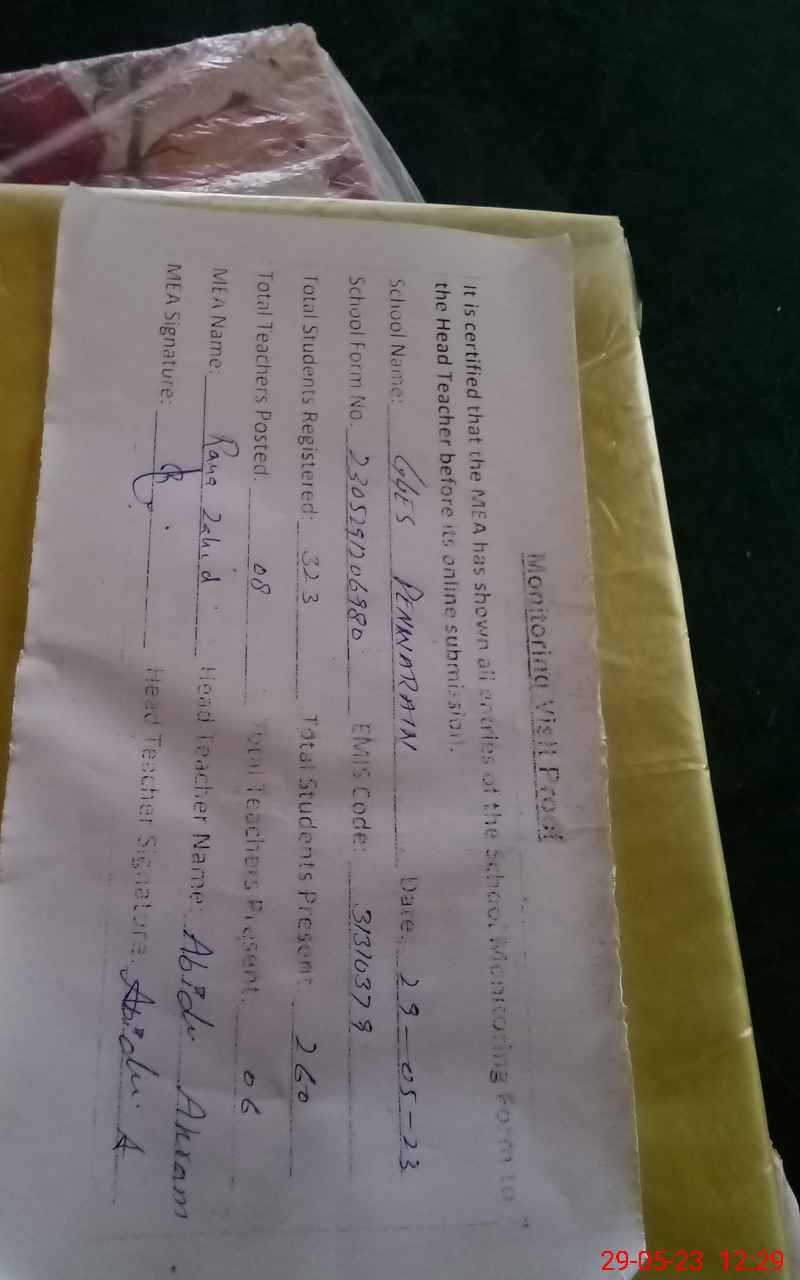 Monitoring Visit Proof
It is certified that the MEA has shown all entries of the School Monitoring Form to
the Head Teacher before its online submission.
School Name: GGES PENWARAIN Date: 29-05-23
School Form No. 2305291206980 EMIS Code: 31310379
Total Students Registered: 323 Total Students Present: 260
Total Teachers Posted. 08 Total Teachers Present. 06
MEA Name: Rana Zahid Head Teacher Name: Abida Akram
MEA Signature: Head Teacher Signature: Abida A
29-05-23 12:29